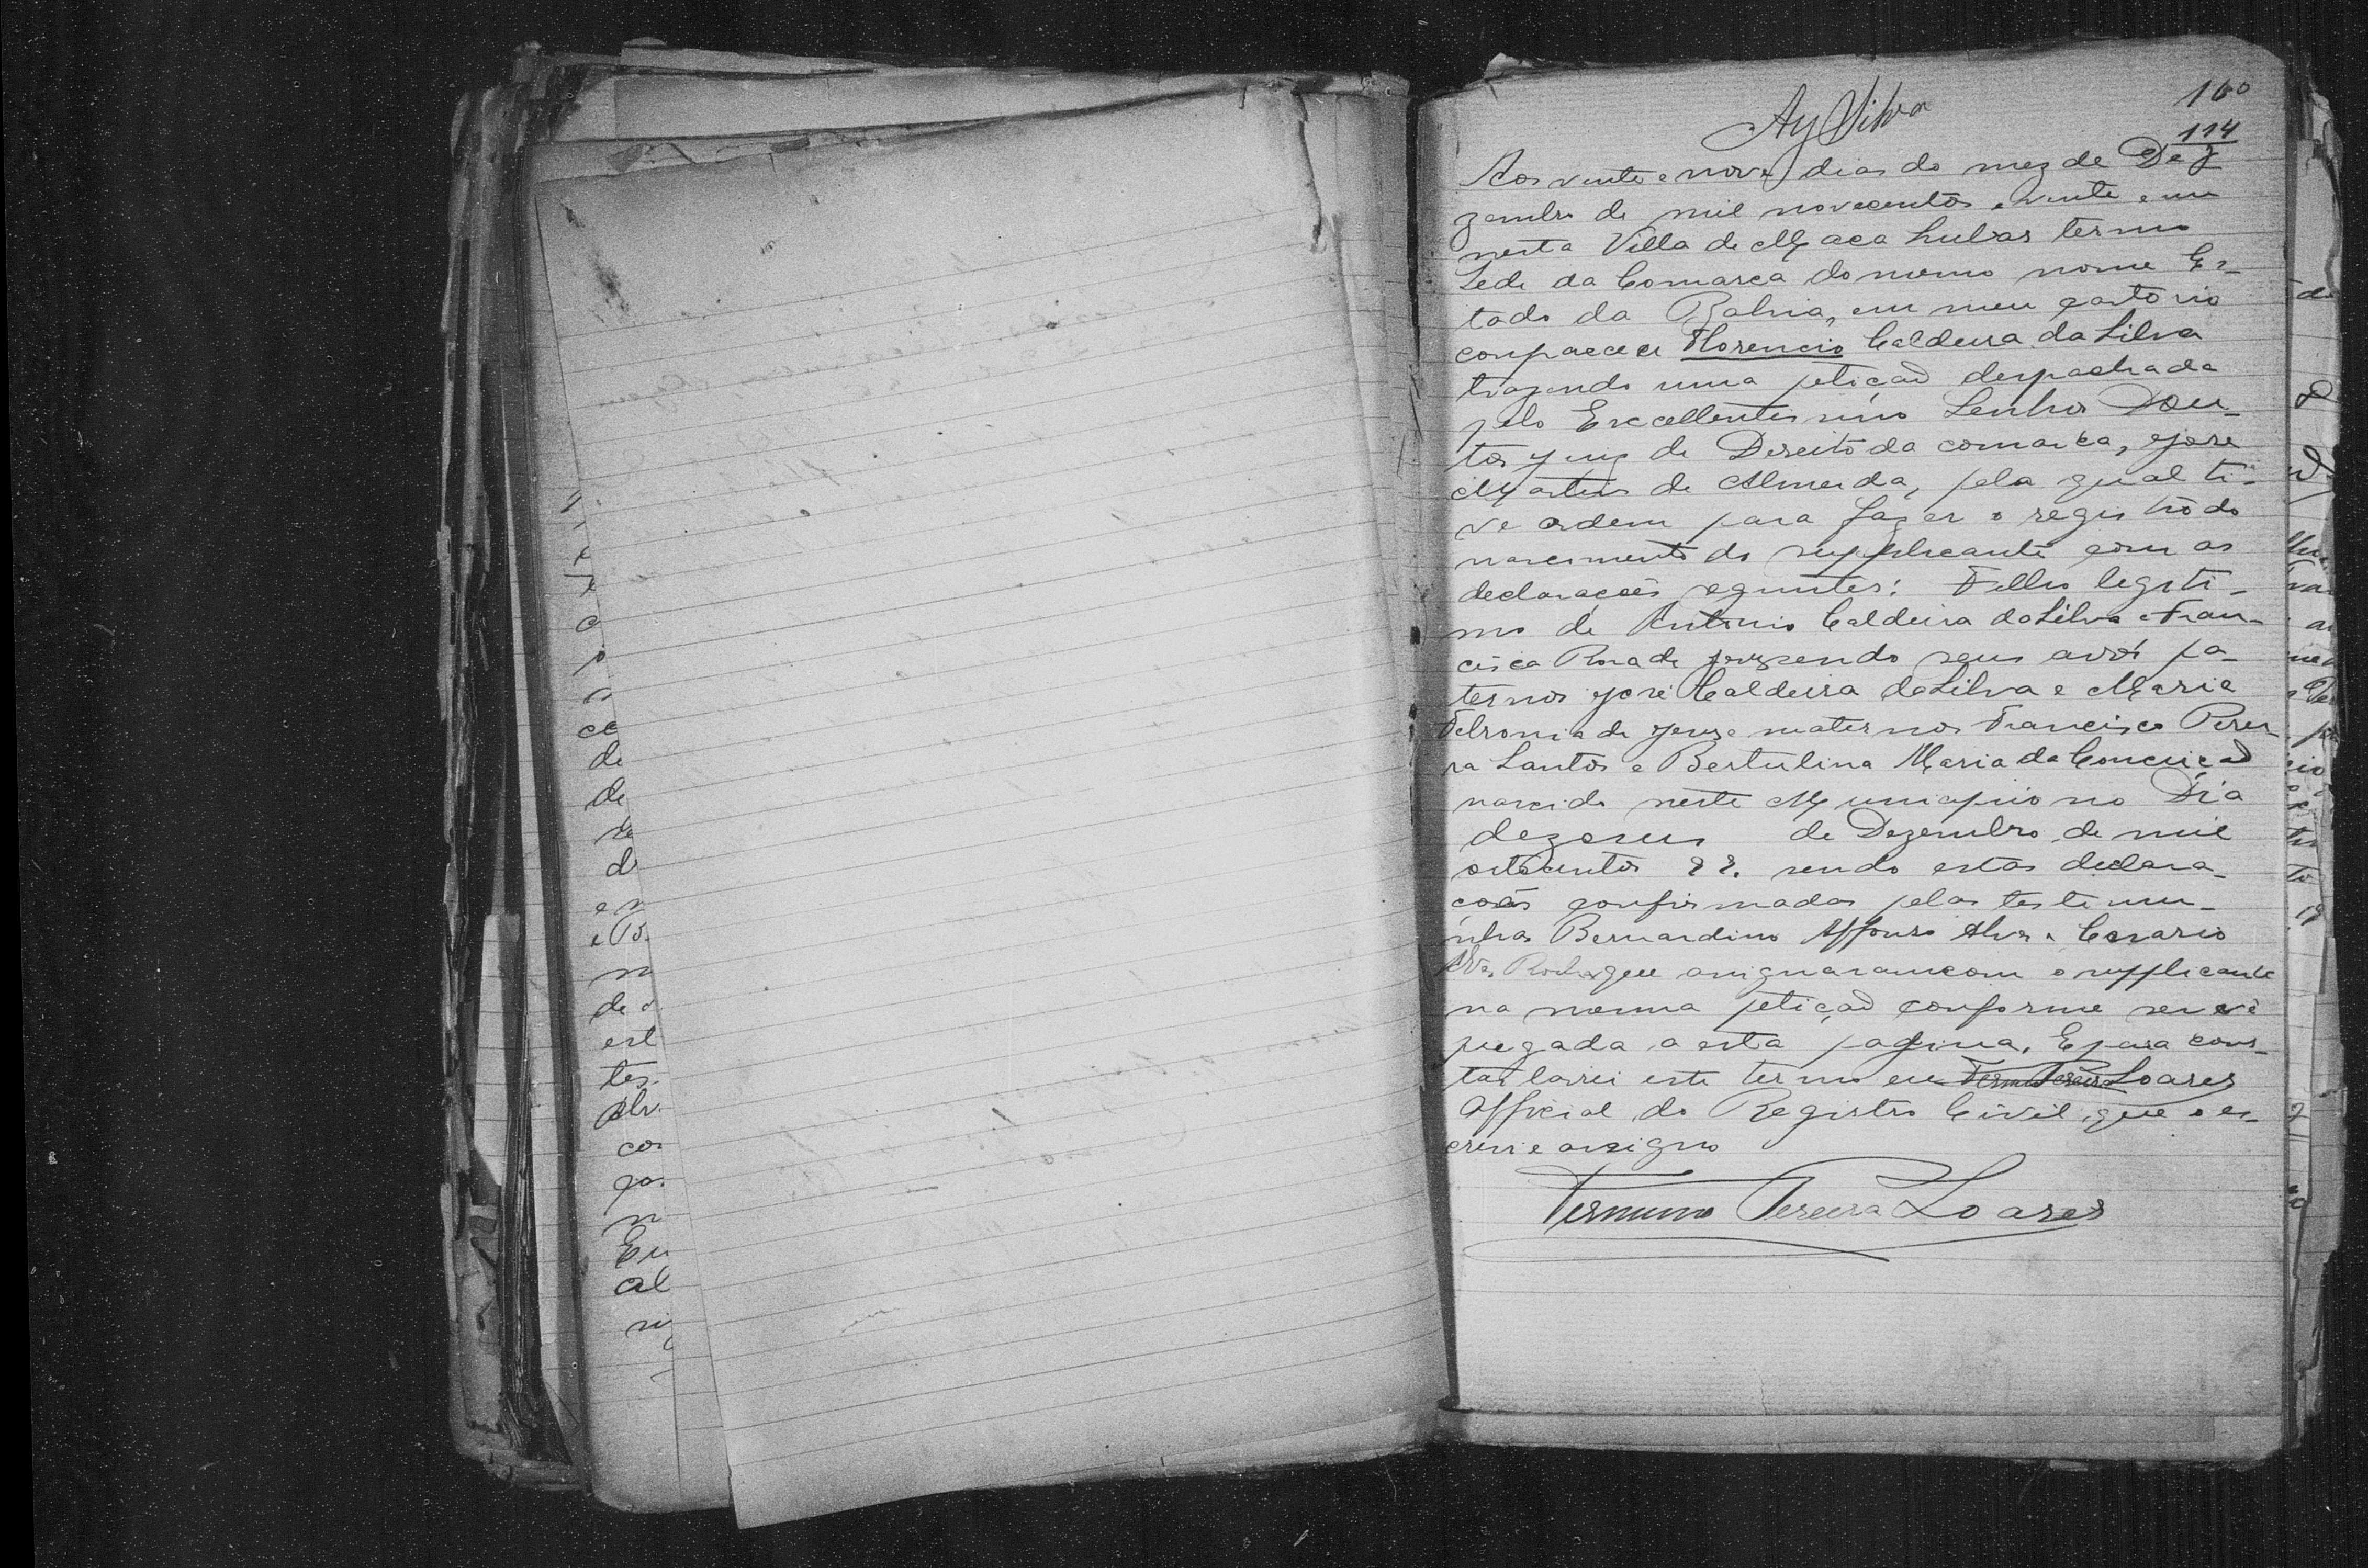 160
Ay Silva
114
Aos vinte e nove dias do mez de De
zembro de mil novecentos e vinte e um
nesta Villa de Macahubas termo
Sede da Comarca do mesmo nome Es-
tado da Bahia, em meu cartorio
compaeceu Florencio Caldeira da Silva
trazendo uma petição despachada
pelo Excellentissimo Senhor Dou-
tor Juiz de Direito da comarca, José
Martins de Almeida, pela qual ti-
ve ordem para fazer o registro do
nascimento do supplicante com as
declarações seguintes: Filho legiti-
mo de Antonio Caldeira da Silva e Fran-
cisca Rosa de Jesus sendo seus avós pa-
ternos José Caldeira da Silva e Maria
de Jesus e maternos Francisco Perei-
ra Santos e Bertulina Maria da Conceição
nascido neste Municipio no Dia
dezeseis de Dezembro de mil
oitocentos 88. sendo estas declara-
coẽs confirmadas pelas testemu-
nhas Bernardino Affonso Alves e Cesario
que assignaram com o supplicante
na mesma petição conforme se vê
pregada a esta pagina. E para cons-
tar lavrei este termo eu Firmino Pereira Soares
Official do Registro Civil, que o es-
crevi e assigno
Firmino Pereira Soares
ce
de
de
de
e B.
de
est
tes
co
Eu
al